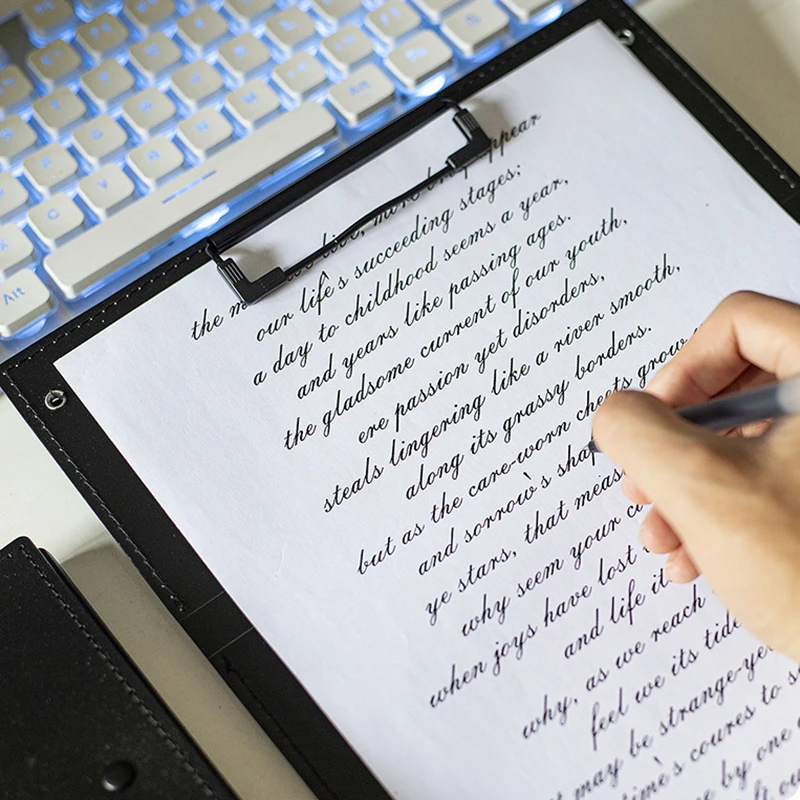 Alt
Alt
the live, appear
our life's succeeding stages;
a day to childhood seems a year,
and years like passing ages.
the gladsome current of our youth,
ere passion yet disorders,
steals lingering like a river smooth,
along its grassy borders.
but as the care-worn cheets grow
and sorrow's
ye stars, that
why seem your
when joys have lost
and life
why, as we reach
feel we its tide
may be
time's coures to
by one